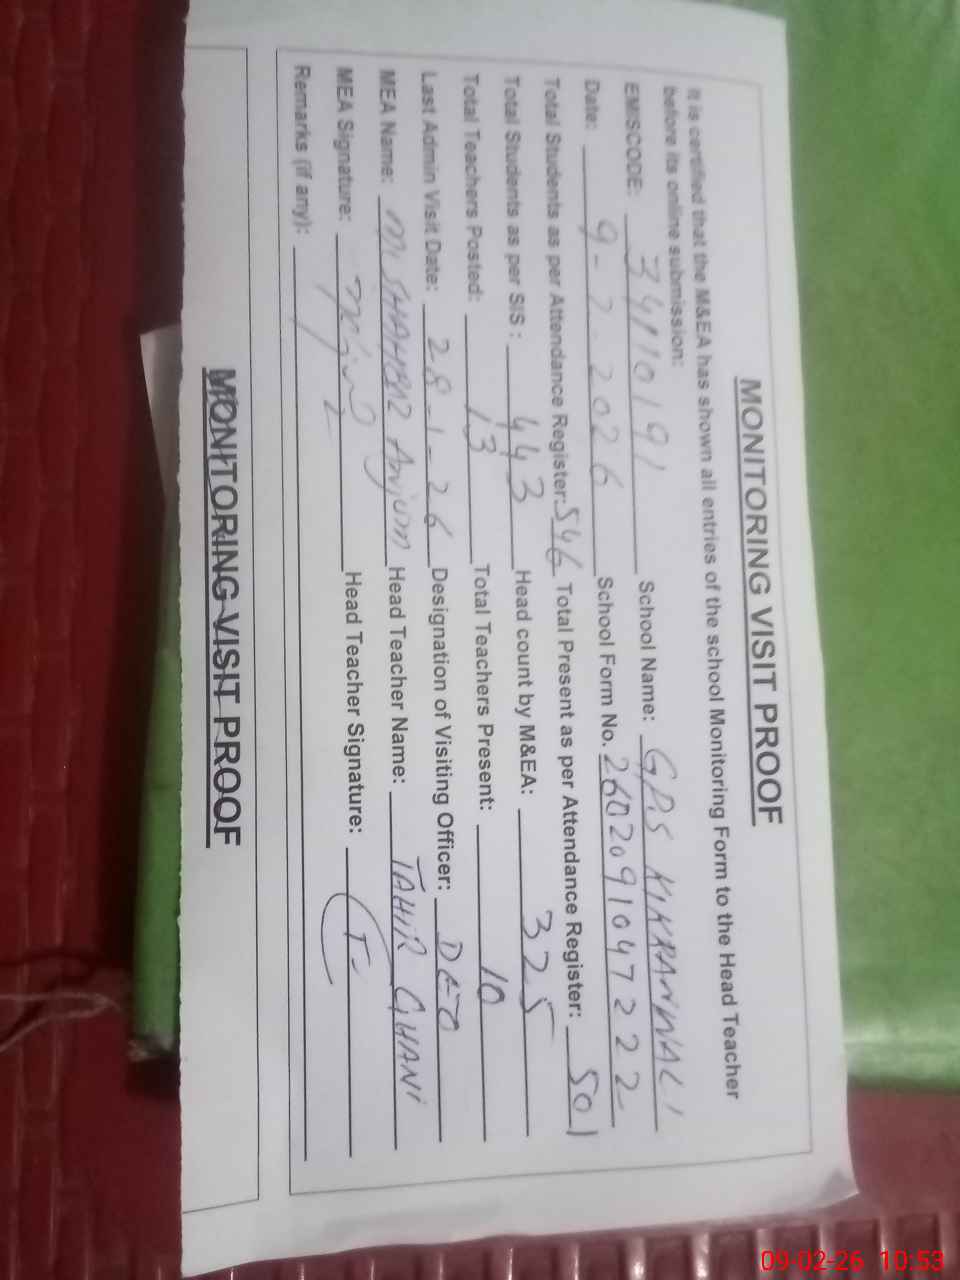 MONITORING VISIT PROOF
It is certified that the M&EA has shown all entries of the school Monitoring Form to the Head Teacher
before its online submission:
EMISCODE: 34110191 School Name: GPS KIKRANWALI
Date: 9-2-2026 School Form No. 26020910472 22
Total Students as per Attendance Register: 546 Total Present as per Attendance Register: 501
Total Students as per SIS: 443 Head count by M&EA: 325
Total Teachers Posted: 13 Total Teachers Present: 10
Last Admin Visit Date: 28-1-26 Designation of Visiting Officer: DEO
MEA Name: M. SHAHBAZ Anjum Head Teacher Name: TAHIR GHANI
MEA Signature: Head Teacher Signature:
Remarks (if any):
MONITORING VISIT PROOF
09-02-26 10:53